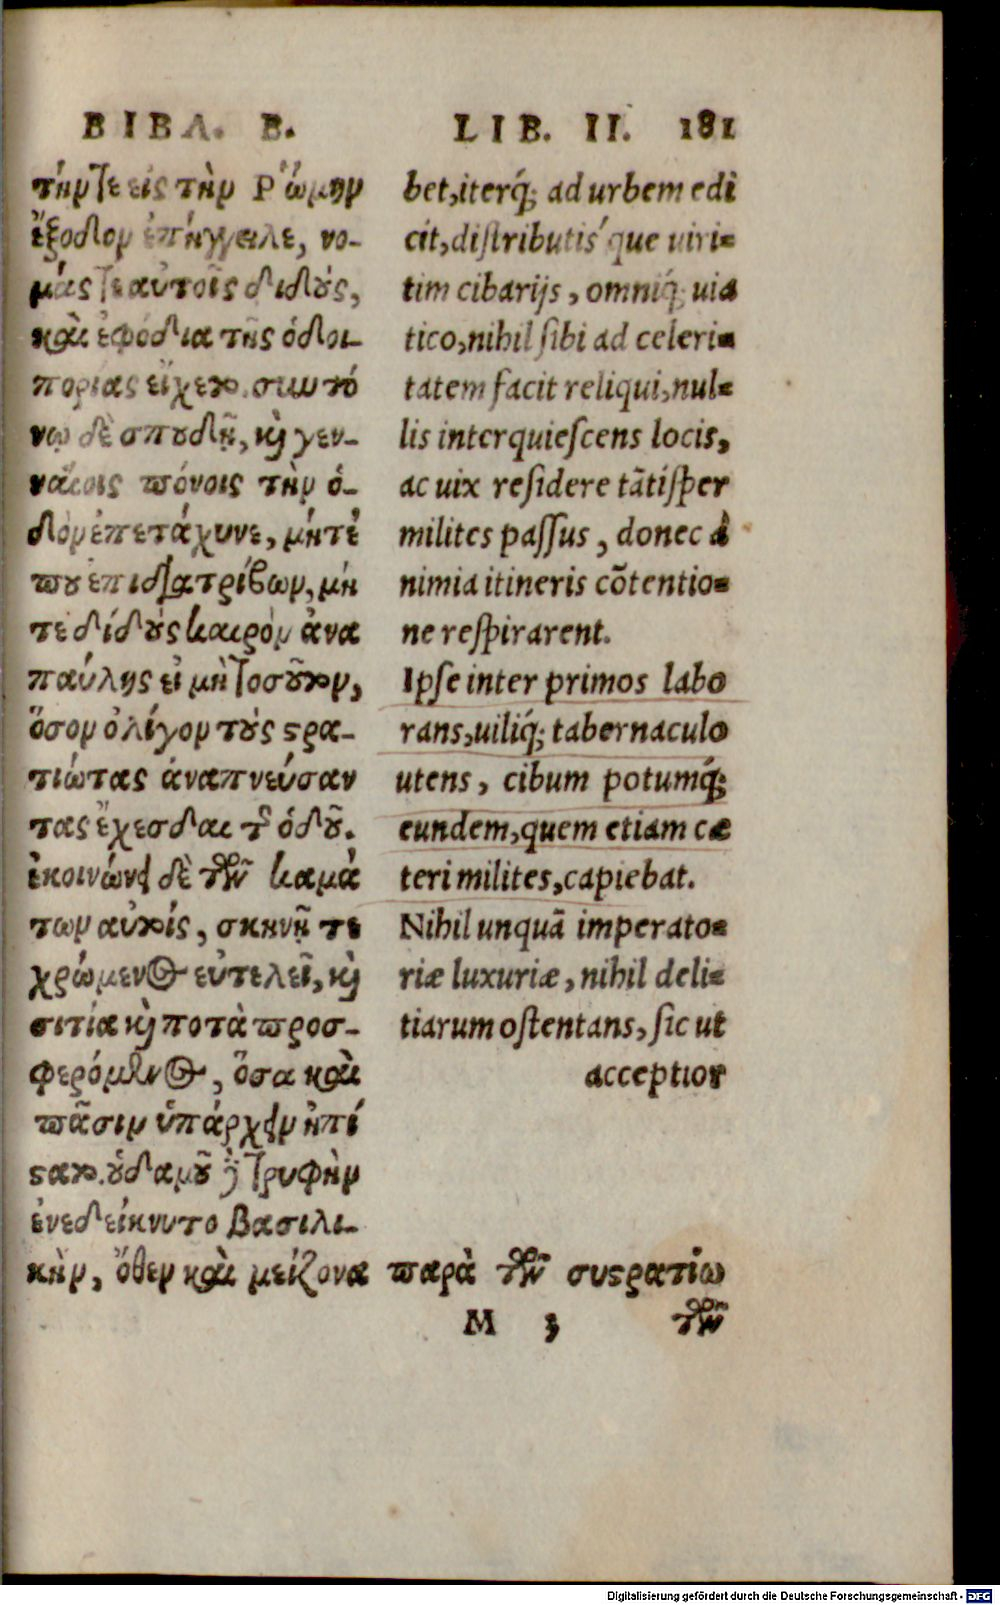 ΒΙΒΛ. Β.
τήν τε εἰς τὴν Ῥώμην
ἔξοδον ἐπήγγειλε, νο-
μάς τε αὐτοῖς διδοὺς,
καὶ ἐφόδια τῆς ὁδοι-
πορίας εἴχετο. συντό
νῳ δὲ σπουδῇ, καὶ γεν-
ναίοις πόνοις τὴν ὁ-
δὸν ἐπετάχυνε, μήτέ
που ἐπιδιατρίβων, μή
τε διδοὺς καιρὸν ἀνα
παύλης εἰ μὴ τοσοῦτον,
ὅσον ὀλίγον τοὺς στρα-
τιώτας ἀναπνεύσαν
τας ἔχεσθαι τῆς ὁδοῦ.
ἐκοινώνει δὲ τῶν καμά
των αὐτοῖς, σκηνῇ τε
χρώμενος εὐτελεῖ, καὶ
σιτία καὶ ποτὰ προσ-
φερόμενος, ὅσα καὶ
πᾶσιν ὑπάρχειν ἠπί
στατο. οὐδαμοῦ δὲ τρυφὴν
ἐνεδείκνυτο βασιλι-
κὴν, ὅθεν καὶ μείζονα παρὰ τῶν συστρατιω
LIB. II. 181
bet, iterq́; ad urbem edi
cit, distributiśque uiri=
tim cibarijs, omniq́; uia
tico, nihil sibi ad celeri=
tatem facit reliqui, nul=
lis interquiescens locis,
ac uix residere tãtisper
milites passus, donec à
nimia itineris cõtentio=
ne respirarent.
Ipse inter primos labo
rans, uiliq́; tabernaculo
utens, cibum potumq́;
eundem, quem etiam cæ
teri milites, capiebat.
Nihil unquã imperato=
riæ luxuriæ, nihil deli=
tiarum ostentans, sic ut
acceptior
M 3 τῶν
Digitalisierung gefördert durch die Deutsche Forschungsgemeinschaft - DFG